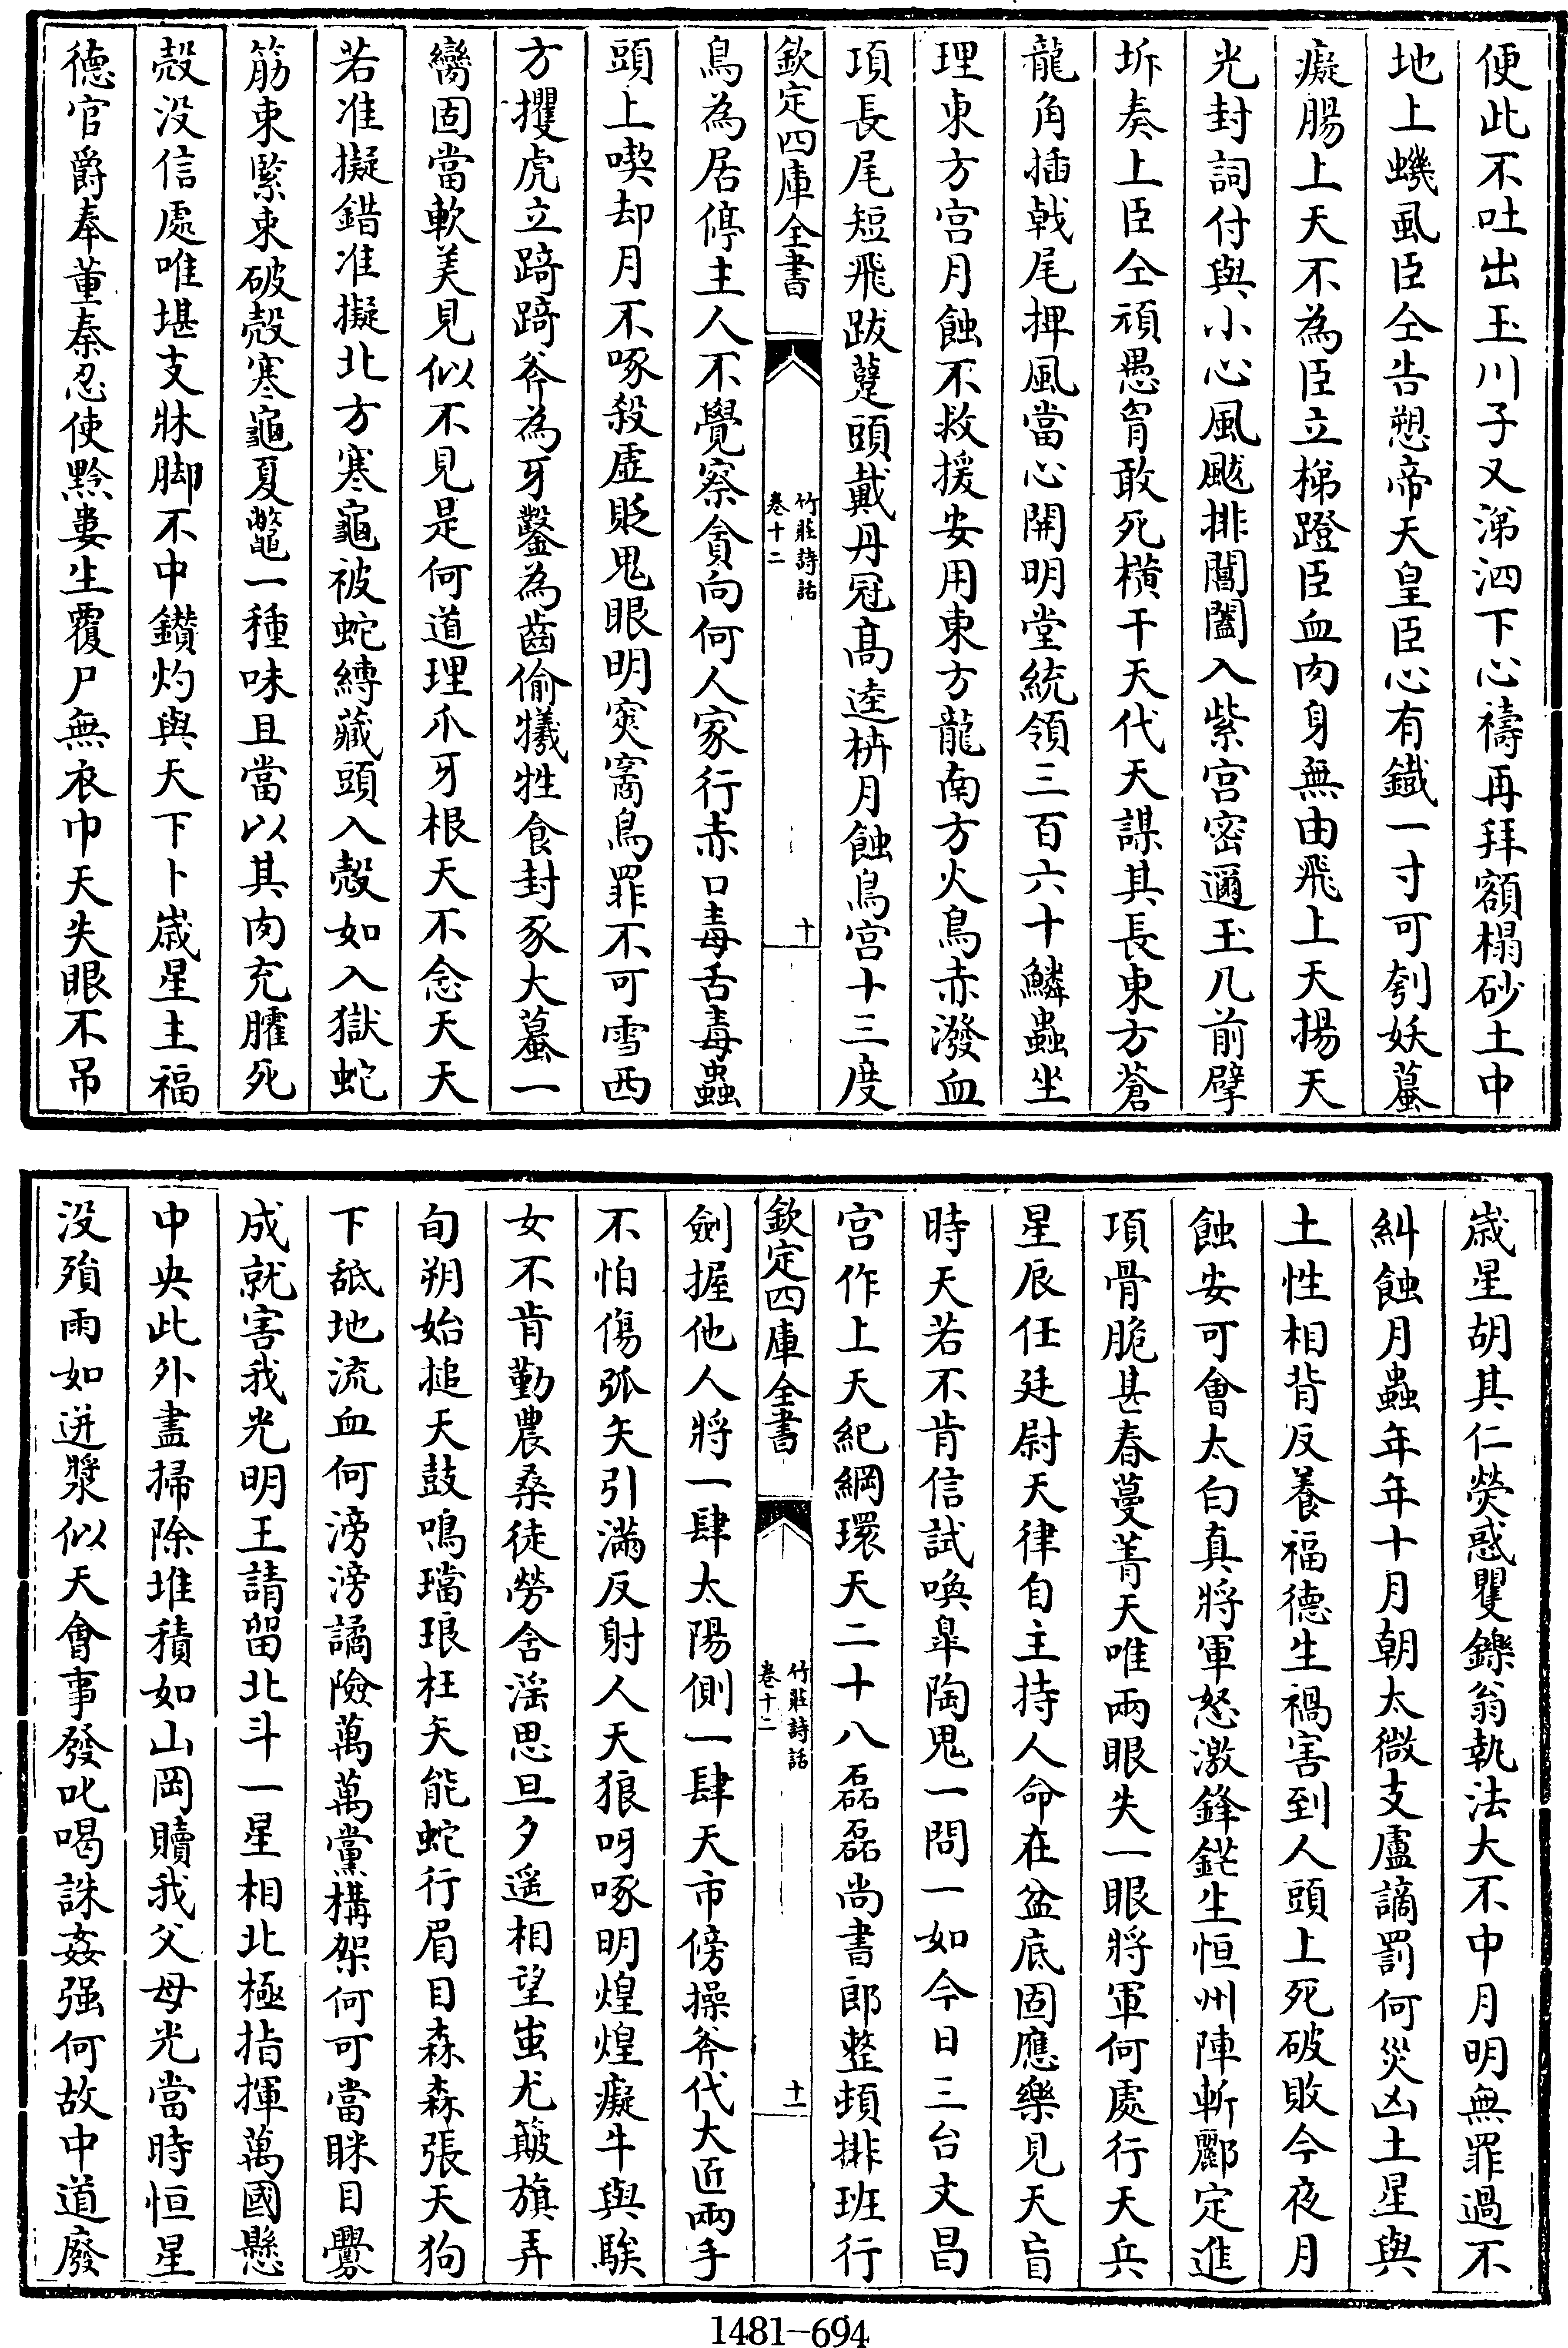 便此不吐出玉川子又涕泗下心禱再拜額榻砂土中
地上蟣虱臣仝告愬帝天皇臣心有鐵一寸可刳妖蟇
癡腸上天不為臣立梯蹬臣血肉身無由飛上天揚天
光封詞付與小心風颰排閶闔入紫宫密邇玉几前擘
坼奏上臣仝頑愚胷敢死横干天代天謀其長東方蒼
龍角插戟尾捭風當心開明堂統領三百六十鱗蟲坐
理東方宫月蝕不救援安用東方龍南方火鳥赤潑血
項長尾短飛跋躠頭戴丹冠髙逵枿月蝕鳥宫十三度
欽定四庫全書
竹莊詩話
卷十二
十
鳥為居停主人不覺察貪向何人家行赤口毒舌毒蟲
頭上喫却月不啄殺虚貶鬼眼明突窵鳥罪不可雪西
方攫虎立踦踦斧為牙鑿為齒偷犧牲食封豕大蟇一
臠固當軟美見似不見是何道理爪牙根天不念天天
若准擬錯准擬北方寒龜被蛇縛藏頭入殻如入獄蛇
筋束緊束破殻寒龜夏鼈一種味且當以其肉充臛死
殻没信處唯堪支牀脚不中鑽灼與天下卜嵗星主福
德官爵奉董秦忍使黔婁生覆尸無衣巾天失眼不吊
嵗星胡其仁熒惑矍鑠翁執法大不中月明無罪過不
糾蝕月蟲年年十月朝太微支盧謫罰何災凶土星與
土性相背反養福德生禍害到人頭上死破敗今夜月
蝕安可會太白真將軍怒激鋒鋩生恒州陣斬酈定進
項骨脆甚春蔓菁天唯兩眼失一眼將軍何處行天兵
星辰任廷尉天律自主持人命在盆底固應樂見天盲
時天若不肯信試喚臯陶鬼一問一如今日三台文昌
宫作上天紀綱環天二十八磊磊尚書郎整頓排班行
欽定四庫全書
竹莊詩話
卷十二
十一
劍握他人將一肆太陽側一肆天市傍操斧代大匠兩手
不怕傷弧矢引滿反射人天狼呀啄明煌煌癡牛與騃
女不肯勤農桑徒勞含滛思旦夕遥相望蚩尤簸旗弄
旬朔始搥天鼓鳴璫琅枉矢能蛇行眉目森森張天狗
下舐地流血何滂滂譎險萬萬黨構架何可當眯目釁
成就害我光明王請留北斗一星相北極指揮萬國懸
中央此外盡掃除堆積如山岡贖我父母光當時恒星
没殞雨如迸漿似天會事發叱喝誅姦强何故中道廢
1481-694